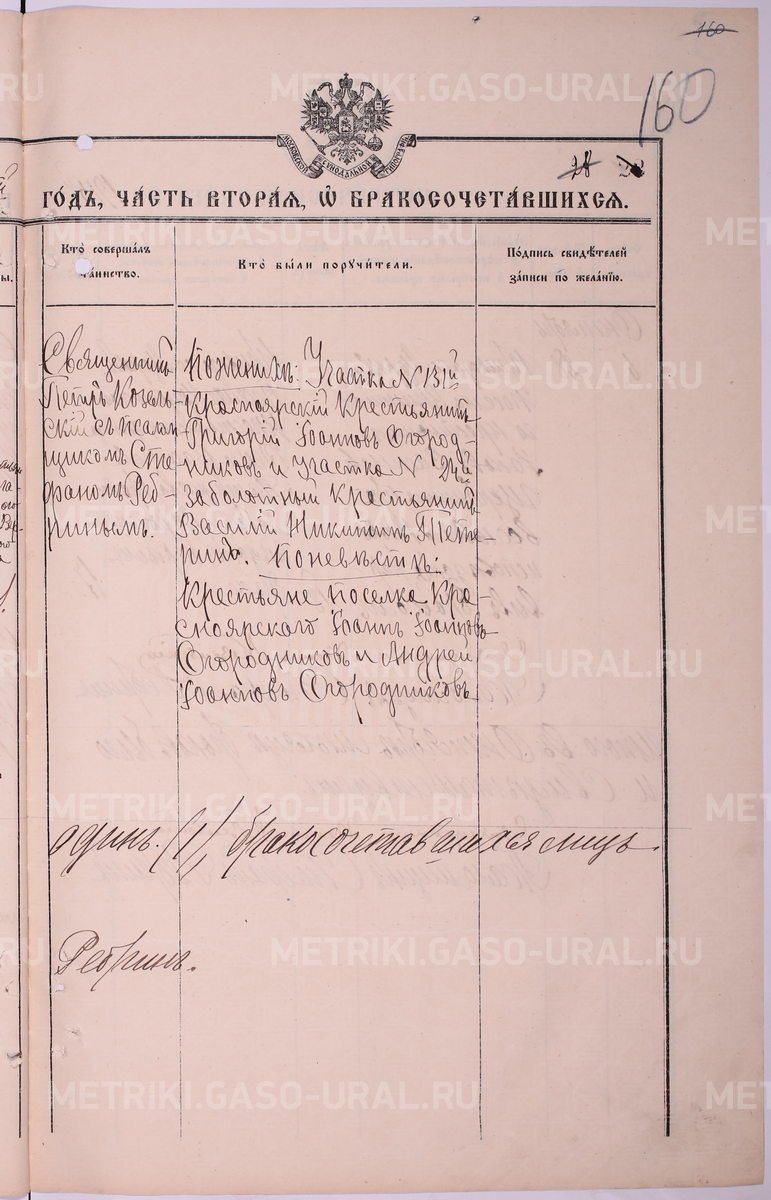 160
160
МОСКОВСКОЙ СѴНОДАЛЬНОЙ ТИПОГРАФІИ
ГОДЪ, ЧАСТЬ ВТОРАЯ, Ѡ БРАКОСОЧЕТАВШИХСЯ.
Кто совершалъ таинство.
Кто были поручители.
Подпись свидѣтелей записи по желанію.
Священникъ
Петръ Козель-
скій съ псалом
щикомъ Сте
фаномъ Реб-
ринымъ.
По женихѣ: Участка N 131й
Красноярскій Крестьянинъ
Григорій Іоанновъ Огород-
никовъ и Участка N 24й
Заболотный Крестьянинъ
Василій Никитинъ Пете-
ринъ. По невѣстѣ:
Крестьяне поселка Кра-
сноярскаго Іоаннъ Іоанновъ
Огородниковъ и Андрей
Іоанновъ Огородниковъ
одинъ. (1), бракосочетавшихся лицъ.
Ребринъ.
METRIKI.GASO-URAL.RU